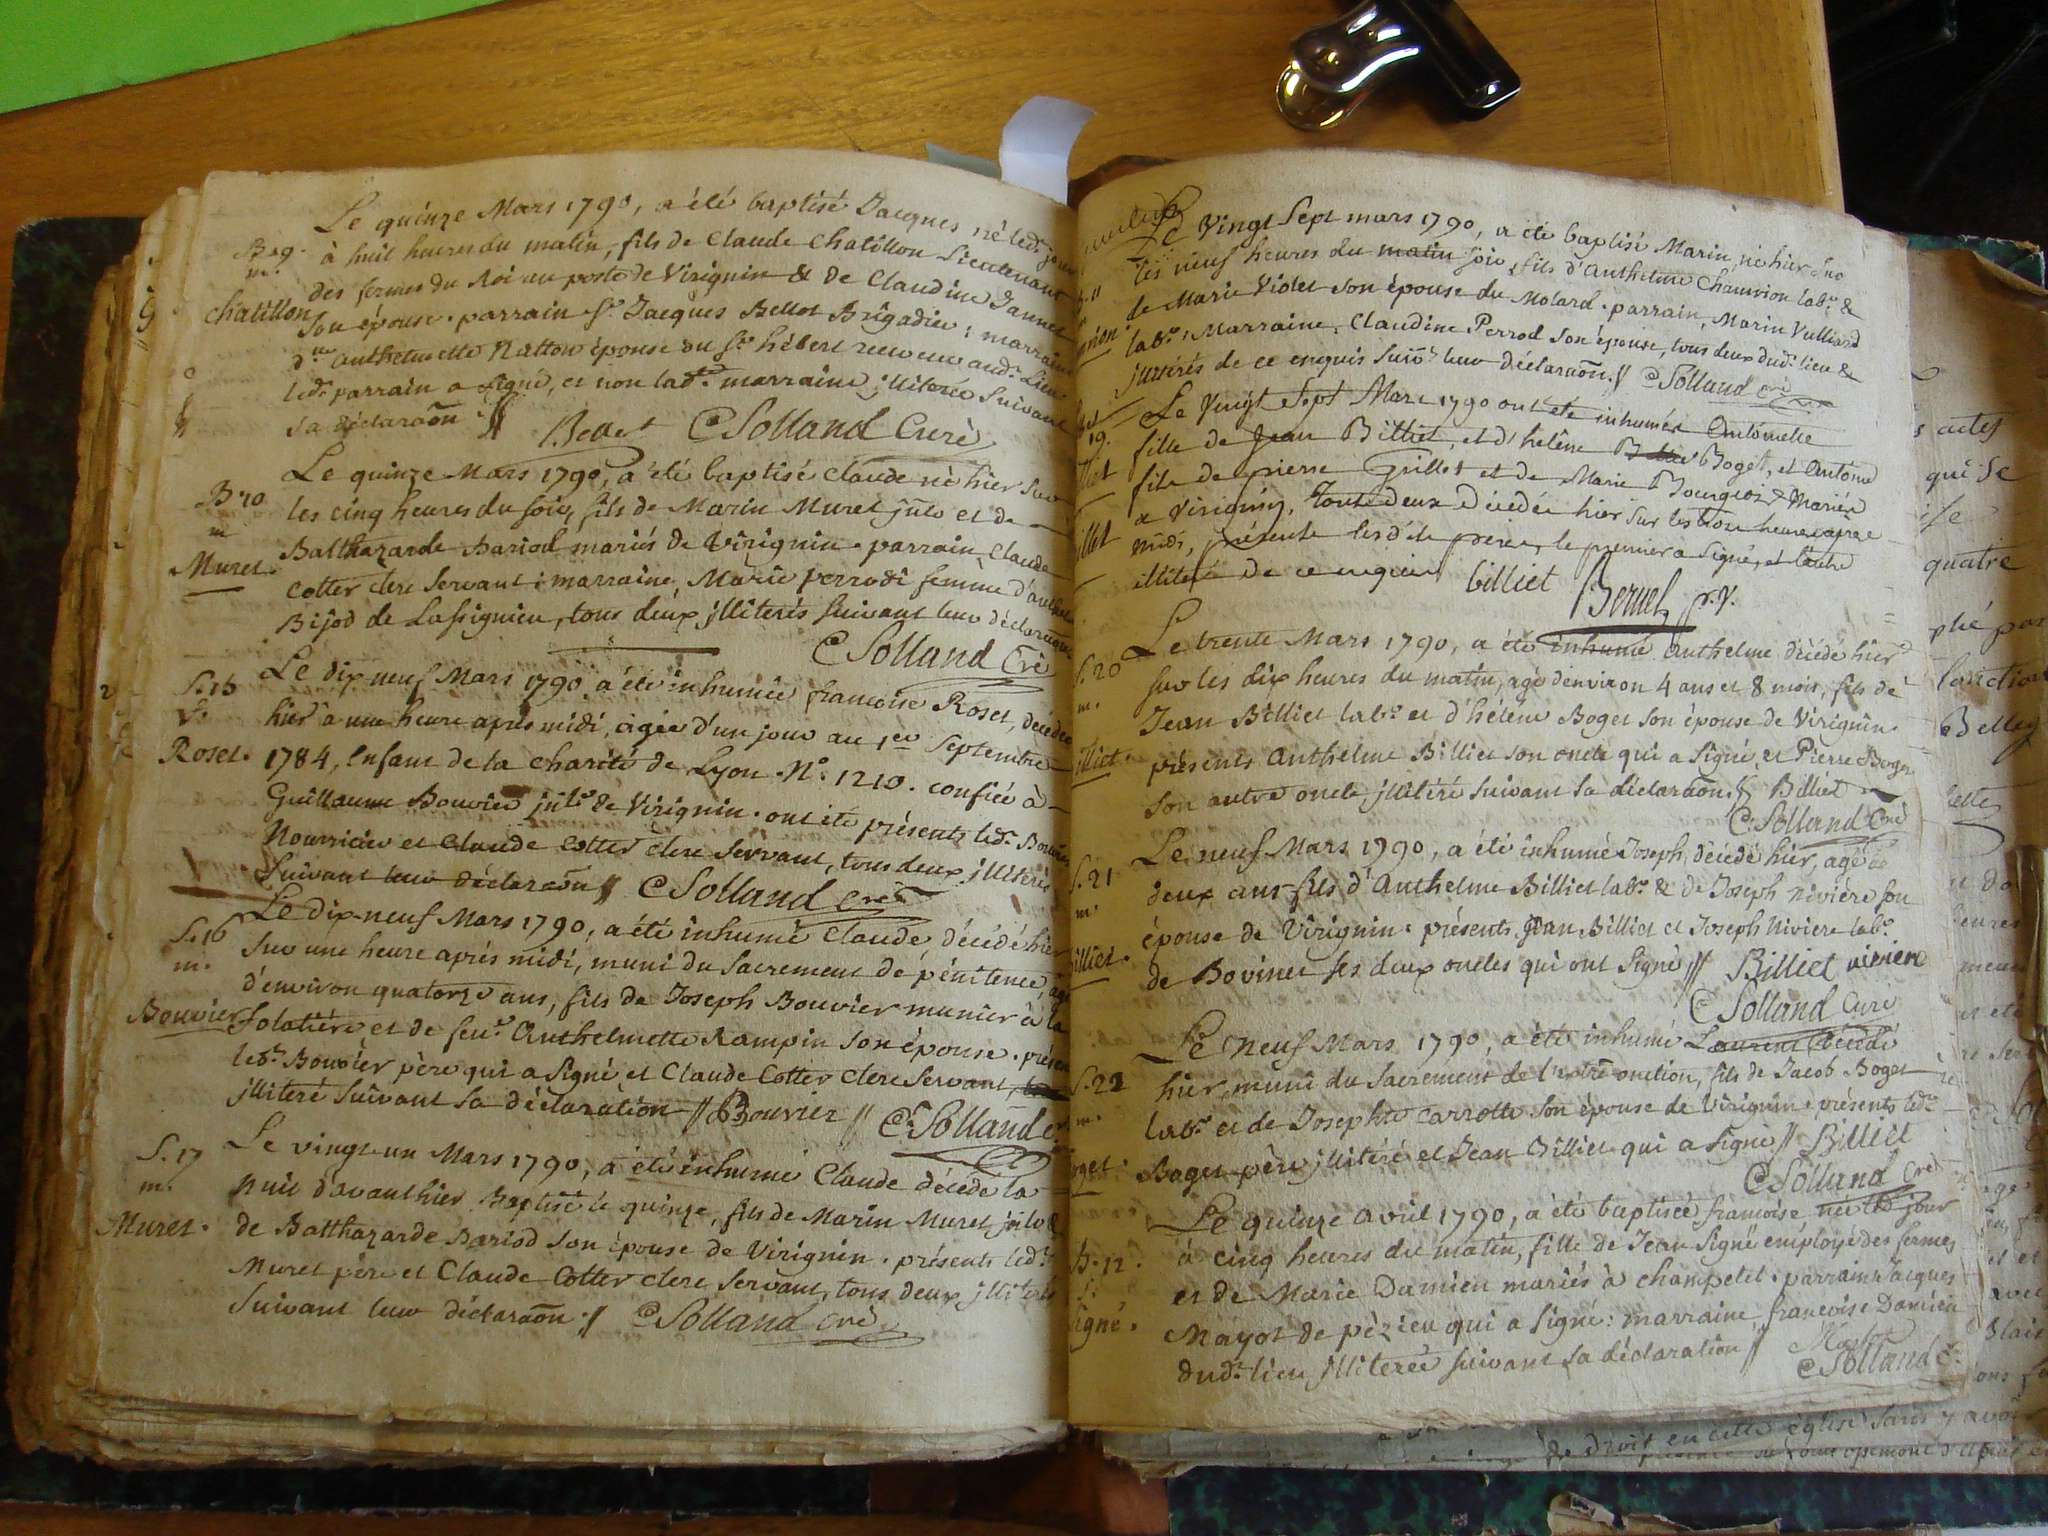 Le quinze Mars 1790, a été baptisé Jacques né led. jour
B. 9. m. à huit heures du matin, fils de Claude Chatillon Lieutenant
des fermes du Roi au poste de Virignin & de Claudine Jannet
Chatillon son épouse. parrain Sr. Jacques Bellot Brigadier; marraine
dlle anthelmette Natton épouse du Sr. hébert receveur aud. Lieu
led. parrain a signé, et non lade. marraine jlliterée suivant
sa déclaraõn.//
Bellet C Solland Curé
Le quinze Mars 1790, a été baptisé claude né hier sur
B. 10 m les cinq heures du soir, fils de Marin Muret et de
Muret. Balthazarde Bariod mariés de Virignin. parrain, Claude
Cotter clerc servant; marraine, Marie perrodi femme d'anthel
Bijod de Lassignieu, tous deux jlliterés suivant leur déclaraõn
C Solland Cré
S. 15 Le dix neuf Mars 1790, a été inhumée francoise Roset, décédée
f. hier à une heure après midi, agée d'un jour au 1er Septembre
Roset. 1784, enfant de la charité de Lyon. No. 1210. confiée à
Guillaume Bouvier de Virignin. ont été présents led. Bouvier
Nourricier et Claude Cotter clerc servant, tous deux jlliterés
suivant leur déclaraõn // C Solland Cré
S. 16 Le dix-neuf Mars 1790, a été inhumé Claude, décédé hier
m. sur une heure après midi, muni du Sacrement de pénitence, agé
d'environ quatorze ans, fils de Joseph Bouvier munier à la
Bouvier folatière et de feue. Anthelmette Rampin son épouse. présen
led. Bouvier père qui a signé et Claude Cotter clerc servant,
jlliteré suivant sa déclaration // Bouvier // C. Solland C
S. 17 Le vingt-un Mars 1790, a été inhumé Claude décédé la
m. nuit d'avanthier Baptisé le quinze, fils de Marin Muret &
Muret. de Balthazarde Bariod son épouse de Virignin. présents led.
Muret père et Claude Cotter clerc servant, tous deux jlliterés
suivant leur déclaraõn.// C Solland Cré
Le Vingt Sept mars 1790, a été baptisé Marin, né hier sur
B. 11 les neuf heures du matin soir, fils d'anthelme Chamrion labr. &
de Marie Violet son épouse du Molard. parrain, Marin Vulliard
labr. Marraine, Claudine Perrod son épouse, tous deux dud. lieu &
jlliterés de ce enquis suivt leur déclaraõn.// C Solland Cré
Le Vingt Sept Mars 1790 ont été inhumés Antoinette
19. fille de Jean Billiet, et d'helène Boget, et Antoine
fils de pierre Grillot et de Marie Bourgeois Mariés
a Virignin, tous deux décédés hier sur les trois heures apres
midi, présents les dits peres, le premier a signé, et l'autre
illiteré de ce enquis billiet Beruet p. v.
Le trente Mars 1790, a été inhumé Anthelme décédé hier
S. 20 sur les dix heures du matin, agé d'environ 4 ans et 8 mois, fils de
m. Jean Billiet labr. et d'héléne Boget son épouse de Virignin.
illiet. présents Anthelme Billiet son oncle qui a signé, et Pierre Boget
son autre oncle jlliteré suivant sa déclaraõn.// Billiet
C. Solland Cré
Le neuf Mars 1790, a été inhumé Joseph, décédé hier, agé de
S. 21 deux ans fils d'Anthelme Billiet labr. & de Joseph nivière son
m. épouse de Virignin. présents, Jean Billiet et Joseph Niviere labr.
Billiet. de Bovinet ses deux oncles qui ont signé // Billiet nivière
C Solland Curé
Le Neuf Mars 1790, a été inhumé Laurent décédé
S. 22 hier, muni du Sacrement de l'extrême onction, fils de Jacob Boget
m. labr. et de Josephte Carrotte son épouse de Virignin. présents led.
oget. Boget père jlliteré et Jean Billiet qui a signé // Billiet
C Solland Cré
Le quinze avril 1790, a été baptisée francoise née led. jour
B. 12. à cinq heures du matin, fille de Jean Signé employé des fermes
f. et de Marie Damien mariés à Champetel. parrain Jacques
igné. Mayot de pézieu qui a signé: marraine, francoise Damien
dud. lieu jlliterée suivant sa déclaration //
C Solland C.
actes
qui se
quatre